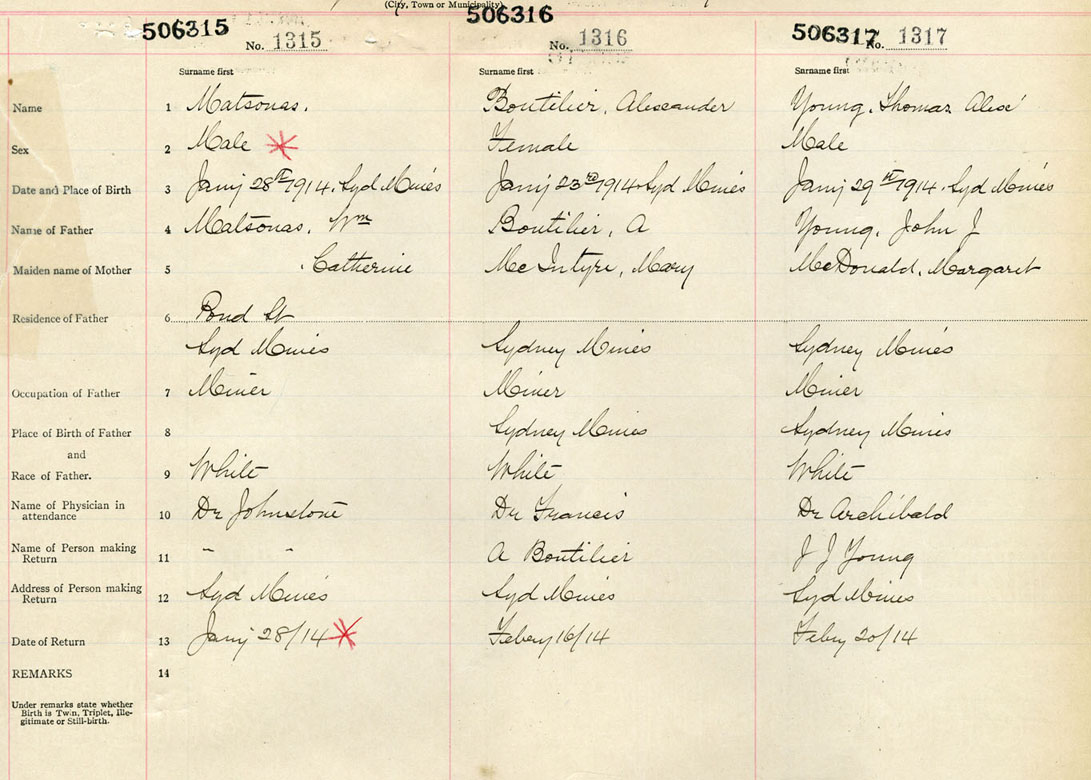 (City, Town or Municipality)
506315 No. 1315 506316 No. 1316 506317 No. 1317
Surname first Surname first Surname first
Name 1 Matsonas. Boutilier, Alexeander Young, Thomas Alex'
Sex 2 Male * Female Male
Date and Place of Birth 3 Jany 28th 1914. Syd Mines Jany 23rd 1914 Syd Mines Jany 29th 1914. Syd Mines
Name of Father 4 Matsonas. Wm Boutilier, A Young, John J
Maiden name of Mother 5 . Catherine McIntyre, Mary McDonald, Margaret
Residence of Father 6 Pond St
Syd Mines Sydney Mines Sydney Mines
Occupation of Father 7 Miner Miner Miner
Place of Birth of Father 8 Sydney Mines Sydney Mines
and
Race of Father. 9 White White White
Name of Physician in attendance 10 Dr Johnstone Dr Francis Dr Archibald
Name of Person making Return 11 " " A Boutilier J J Young
Address of Person making Return 12 Syd Mines Syd Mines Syd Mines
Date of Return 13 Jany 28/14 * Febry 16/14 Febry 20/14
REMARKS 14
Under remarks state whether
Birth is Twin, Triplet, Ille-
gitimate or Still-birth.